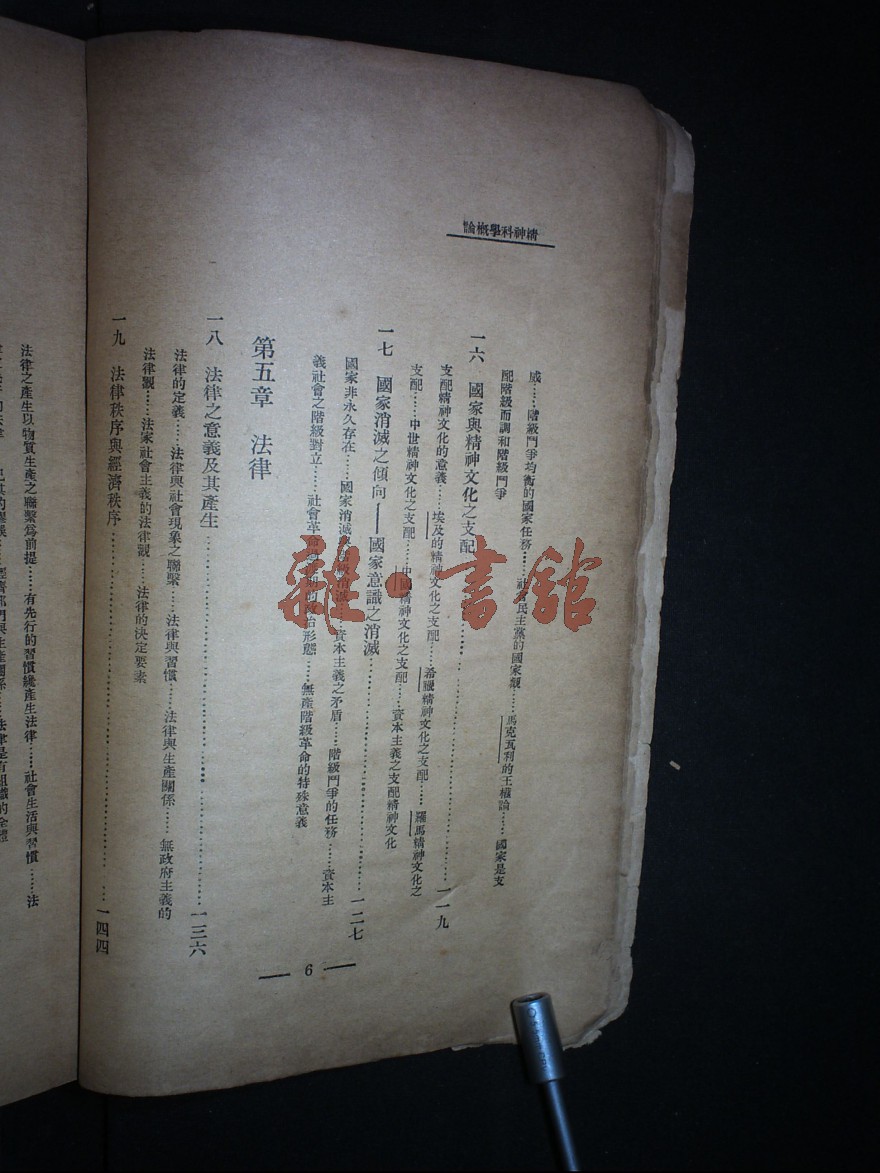 精神科學概論
威……階級鬥爭均衡的國家任務……社會民主黨的國家觀……馬克瓦利的王權論……國家是支
配階級而調和階級鬥爭
一六 國家與精神文化之支配……一一九
支配精神文化的意義……埃及的精神文化之支配……希臘精神文化之支配……羅馬精神文化之
支配……中世精神文化之支配……中國精神文化之支配……資本主義之支配精神文化
一七 國家消滅之傾向——國家意識之消滅……一二七
國家非永久存在……國家消滅與階級消滅……資本主義之矛盾……階級鬥爭的任務……資本主
義社會之階級對立……社會革命的政治形態……無產階級革命的特殊意義
第五章 法律
一八 法律之意義及其產生……一三六
法律的定義……法律與社會現象之聯繫……法律與習慣……法律與生產關係……無政府主義的
法律觀……法家社會主義的法律觀……法律的決定要素
一九 法律秩序與經濟秩序……一四四
— 6 —
法律之產生以物質生產之聯繫爲前提……有先行的習慣纔產生法律……社會生活與習慣……法
雜·書館